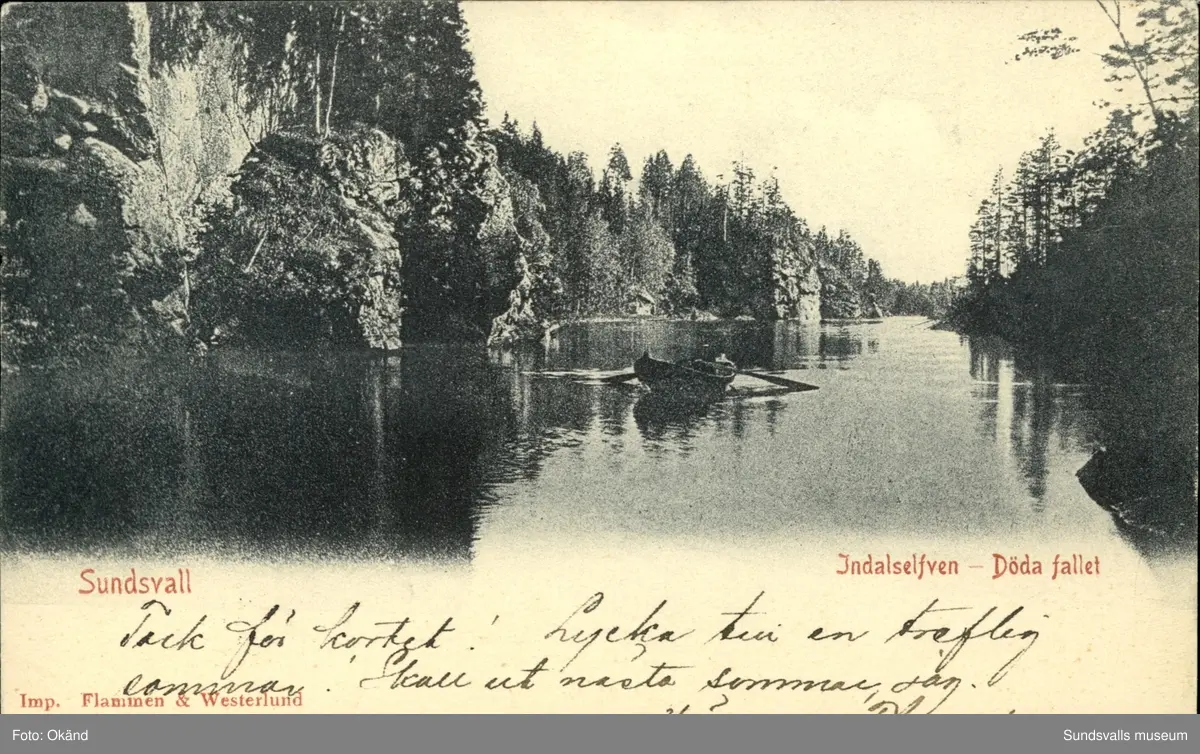 Sundsvall
Indalselfven – Döda fallet
Tack för kortet! Lycka till en treflig
sommar. Skall ut nästa sommar, jag.
Imp. Flammen & Westerlund
Foto: Okänd
Sundsvalls museum